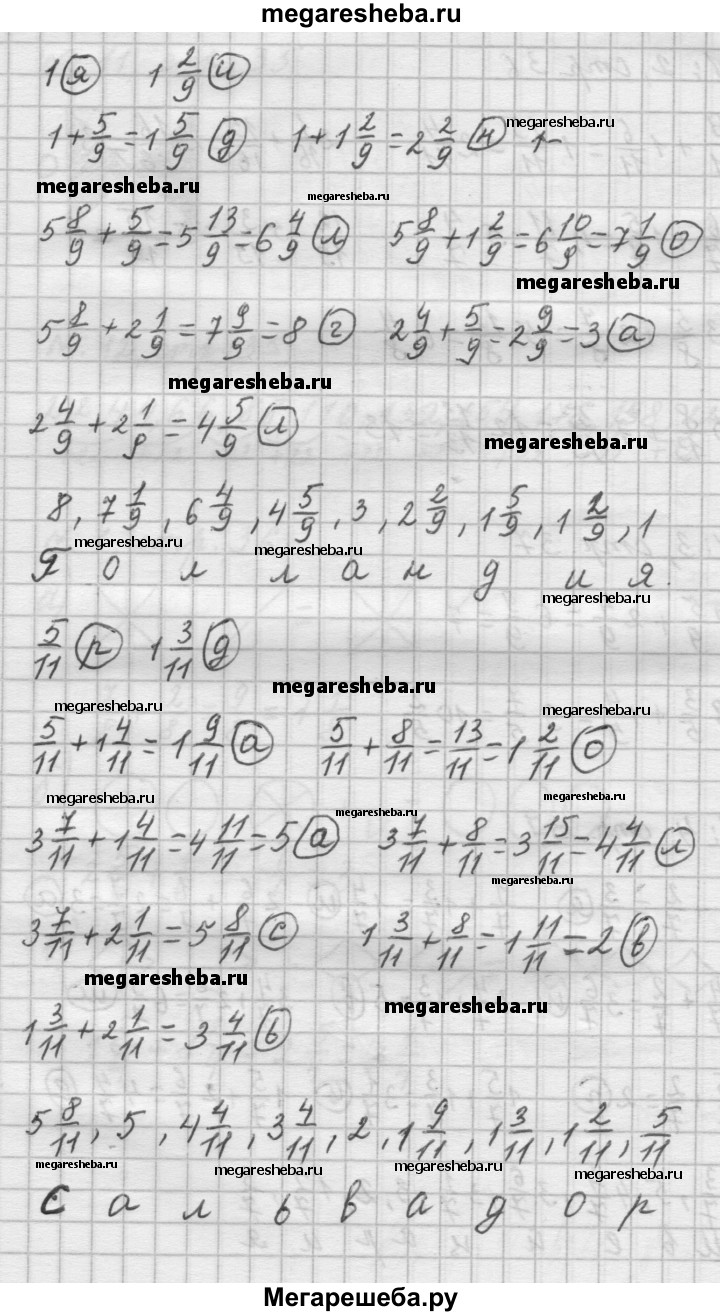 megaresheba.ru
1 я 1 2/9 и
1+5/9=1 5/9 д 1+1 2/9=2 2/9 н 1-
megaresheba.ru
megaresheba.ru megaresheba.ru
5 8/9+5/9=5 13/9=6 4/9 л 5 8/9+1 2/9=6 10/9=7 1/9 о
megaresheba.ru
5 8/9+2 1/9=7 9/9=8 г 2 4/9+5/9=2 9/9=3 а
megaresheba.ru
2 4/9+2 1/9=4 5/9 л
megaresheba.ru
8, 7 1/9, 6 4/9, 4 5/9, 3, 2 2/9, 1 5/9, 1 2/9, 1
megaresheba.ru megaresheba.ru
Г о л л а н д и я.
megaresheba.ru
5/11 р 1 3/11 д
megaresheba.ru
megaresheba.ru megaresheba.ru
5/11+1 4/11=1 9/11 а 5/11+8/11=13/11=1 2/11 о
megaresheba.ru megaresheba.ru
megaresheba.ru
3 7/11+1 4/11=4 11/11=5 а 3 7/11+8/11=3 15/11=4 4/11 л
megaresheba.ru
3 7/11+2 1/11=5 8/11 с 1 3/11+8/11=1 11/11=2 в
megaresheba.ru
megaresheba.ru
1 3/11+2 1/11=3 4/11 ь
5 8/11, 5, 4 4/11, 3 4/11, 2, 1 9/11, 1 3/11, 1 2/11, 5/11
megaresheba.ru megaresheba.ru megaresheba.ru megaresheba.ru
С а л ь в а д о р
megaresheba.ru
Мегарешеба.ру